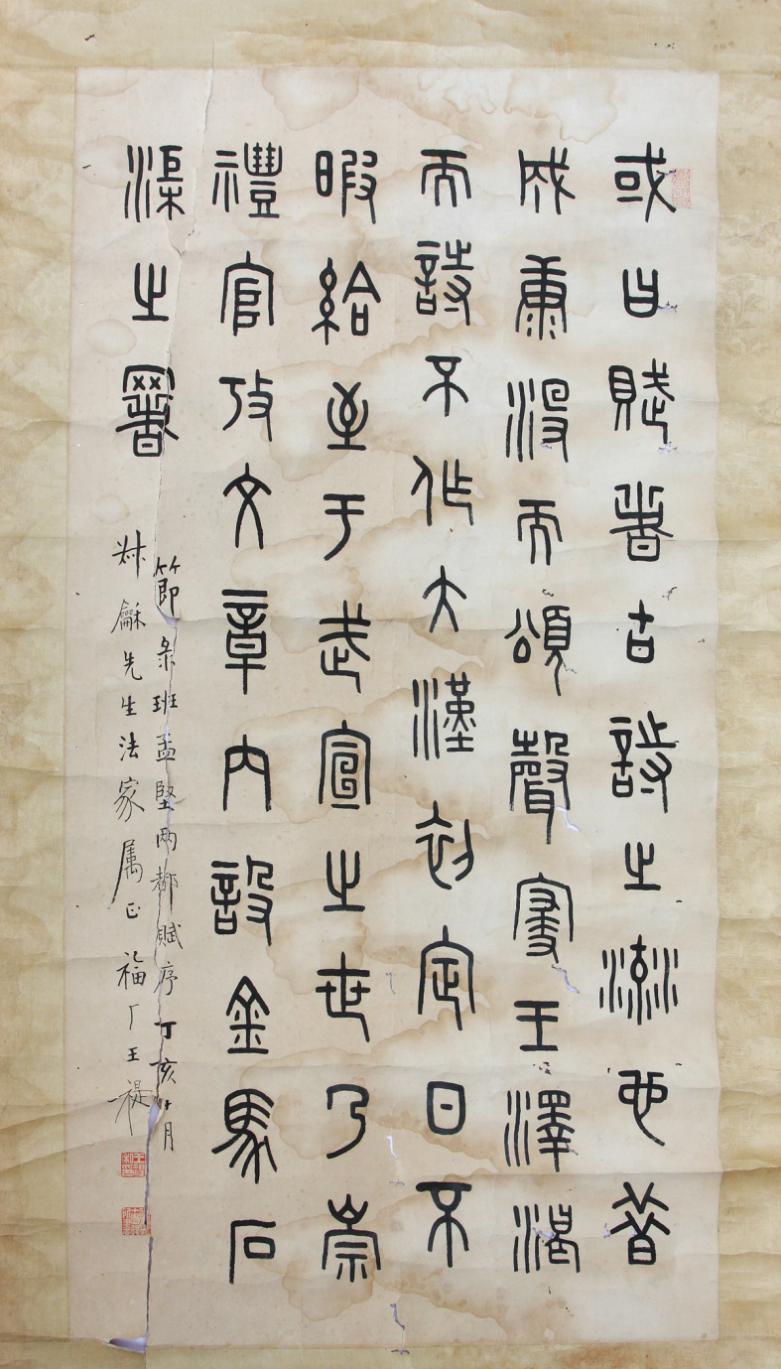 或曰賦者古詩之流也昔
成康沒而頌聲寑王澤渴
而詩不作大漢初定日不
暇給至于武宣之世乃崇
禮官攷文章內設金馬石
渠之署
節彔班孟堅兩都賦序丁亥 月
尗龢先生法家属正福厂王禔